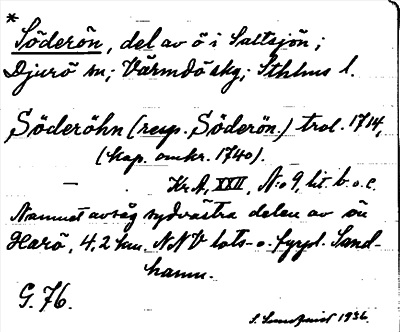 * Söderön, del av ö i Saltsjön;
Djurö sn; Värmdö skg; Sthlms l.
Söderöhn (resp. Söderön.) trol. 1714,
(Kop. omkr. 1740).
— . Kr A, XXII, N:o 9, lit. b. o. c.
Namnet avsåg sydvästra delen av ön
Harö, 4,2 km. NNV lots- o. fyrpl. Sand-
hamn.
G. 76.
S. 1936